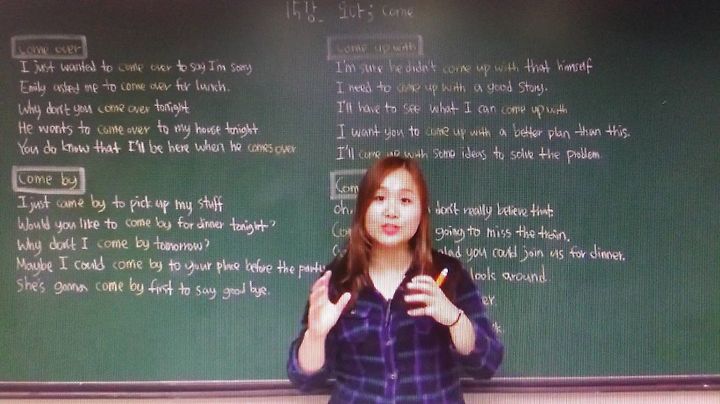 15강_ 오다; come
come over
I just wanted to come over to say I'm sorry
Emily asked me to come over for lunch.
Why don't you come over tonight
He wants to come over to my house tonight
You do know that I'll be here when he comes over
come by
I just came by to pick up my stuff
Would you like to come by for dinner tonight?
Why don't I come by tomorrow?
Maybe I could come by to your place before the party
She's gonna come by first to say good bye.
come up with
I'm sure he didn't come up with that himself
I need to come up with a good story.
I'll have to see what I can come up with
I want you to come up with a better plan than this.
I'll come up with some ideas to solve the problem.
Com
don't really believe that
going to miss the train.
you could join us for dinner.
look around.